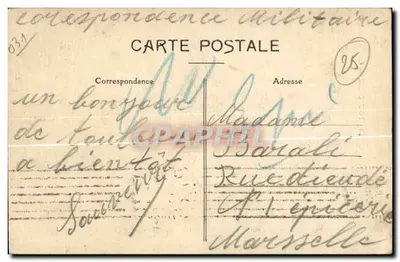 corespondence Militaire
031
CARTE POSTALE
25-
Correspondance
Adresse
un bonjour
de
a bientôt
Madame
Barali
Rue dieudé
N° 1 épicerie
Marsselle
CPARAMA